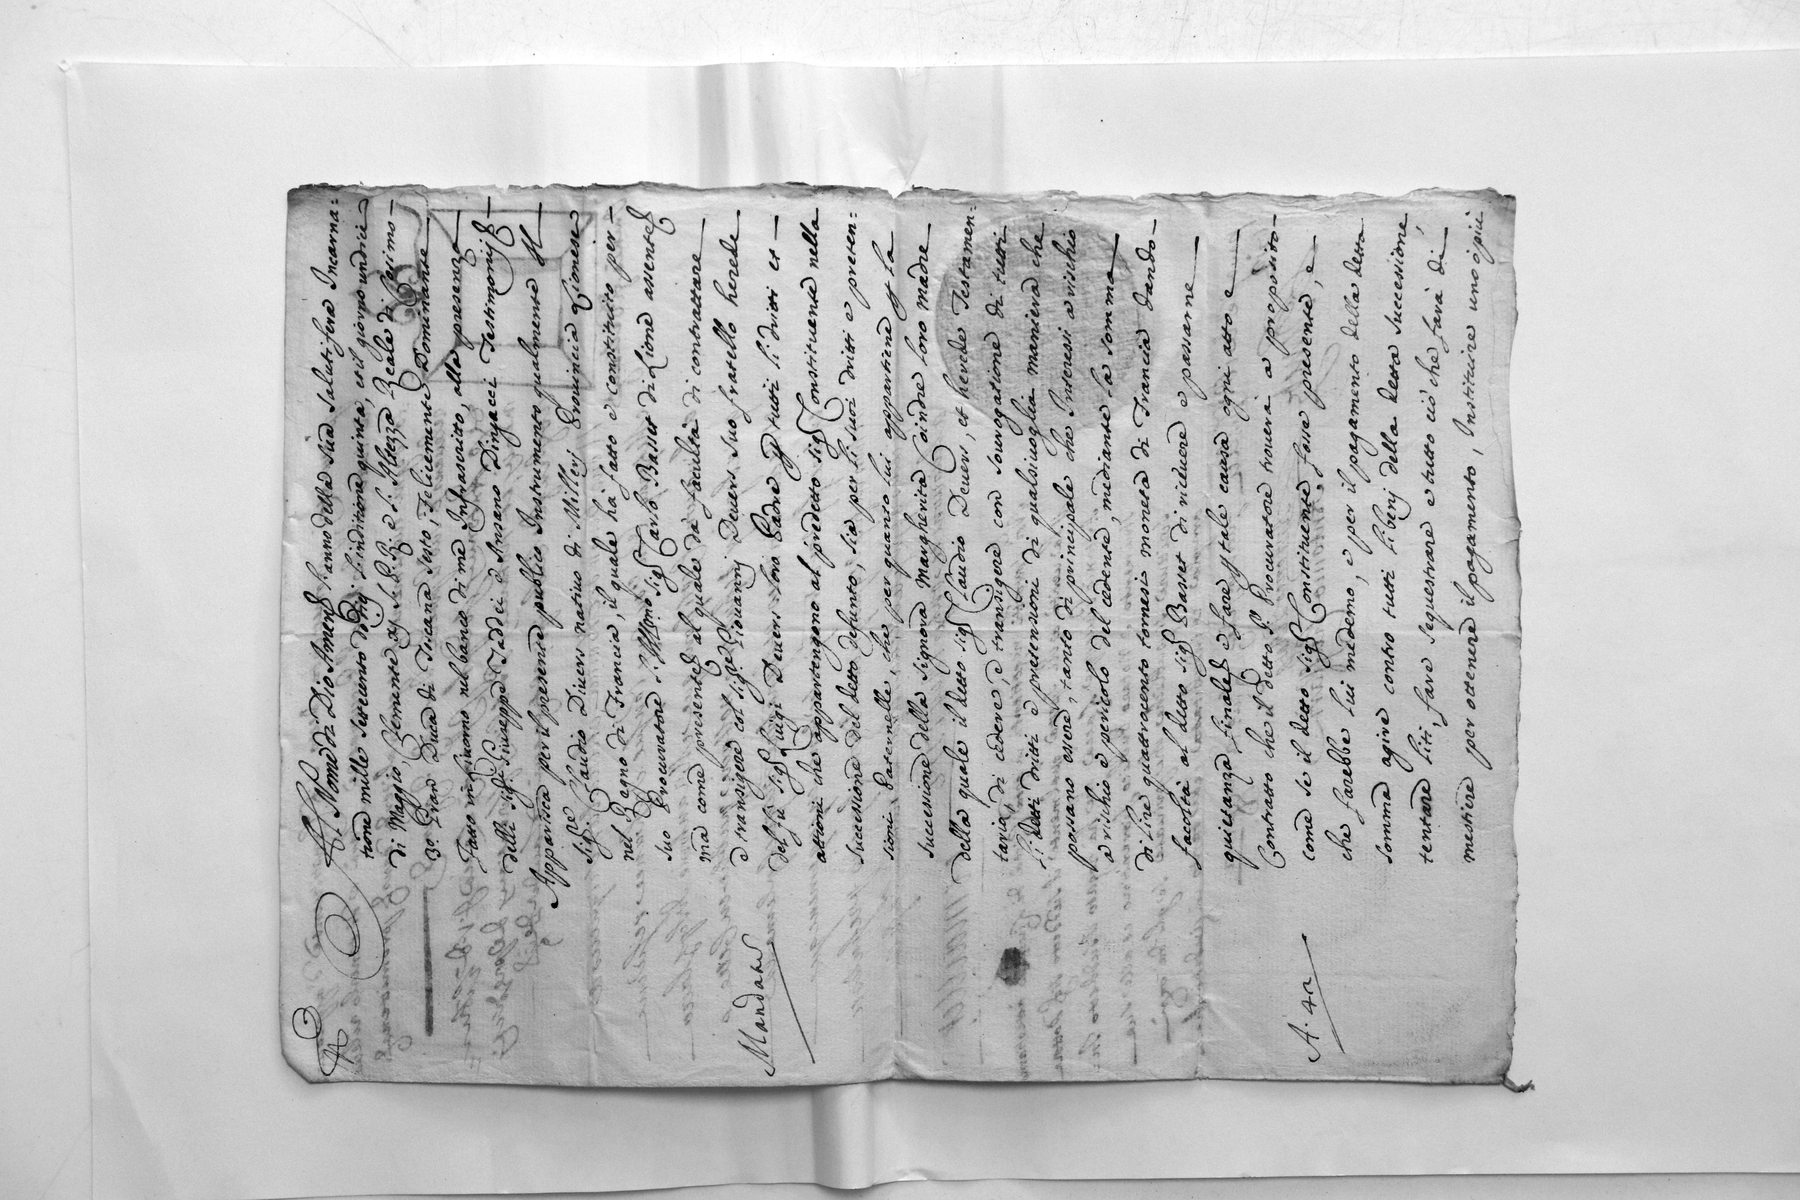 Al Nome di Dio Amen l'anno della sua salutifera Incarna=
tione mille settecento dodici l'inditione quinta, et il giorno undici
di Maggio, Clemente XI S. P. e S. Altezza Reale di Cosimo
3º Gran Duca di Toscana Sesto, Felicemente Dominante
Fatto in Livorno nel banco di me Infrascritto, alla presenza
delli sigri Giuseppe Taddei è Anseno Dinjacci Testimonij
Apparisca per il presente publico Instrumento qualmente Il
sigre Claudio Divers nativo di Millerj Provincia Lionese
nel Regno di Francia, il quale hà fatto e constituito per
suo Procuratore l'Illmo sigr Carlo Basset di Lione assente
mà come presente al quale dà facultà di contrattare
e transigere col sigre Giovannj Devers suo fratello herede
del fù sigr Luigi Devers loro Padre p tutti li dritti et
attioni che appartengono al predetto sigr Constituente nella
successione del detto defunto, sia per li suoi dritti e preten=
sioni Paternelle, che per quanto lui appartiene p la
successione della signora Margherita Coindre loro Madre
della quale il detto sigr Claudio Devers, et herede Testamen=
tario, di cedere e transigere con sourogatione di tutti
li detti dritti e pretensioni di qualsivoglia maniera che
possano essere, tanto di principale che Interessi a rischio
a rischio e pericolo del cedente, mediante la somma
di lire quattrocento tornesi moneta di Francia dando
facoltà al detto sigr Basset di ricevere e passarne
quietanza finale e fare p tale causa ogni atto e
Contratto che il detto Sr Procuratore troverà a proposito
come se il detto sigr Constituente fosse presente, e
che farebbe lui medemo, e per il pagamento della detta
somma agire contro tutti li benj della detta successione
tentare liti, fare sequestrare e tutto ciò che farà di
mestiere per ottenere il pagamento, Instituire uno o più
Mandato
A. 42